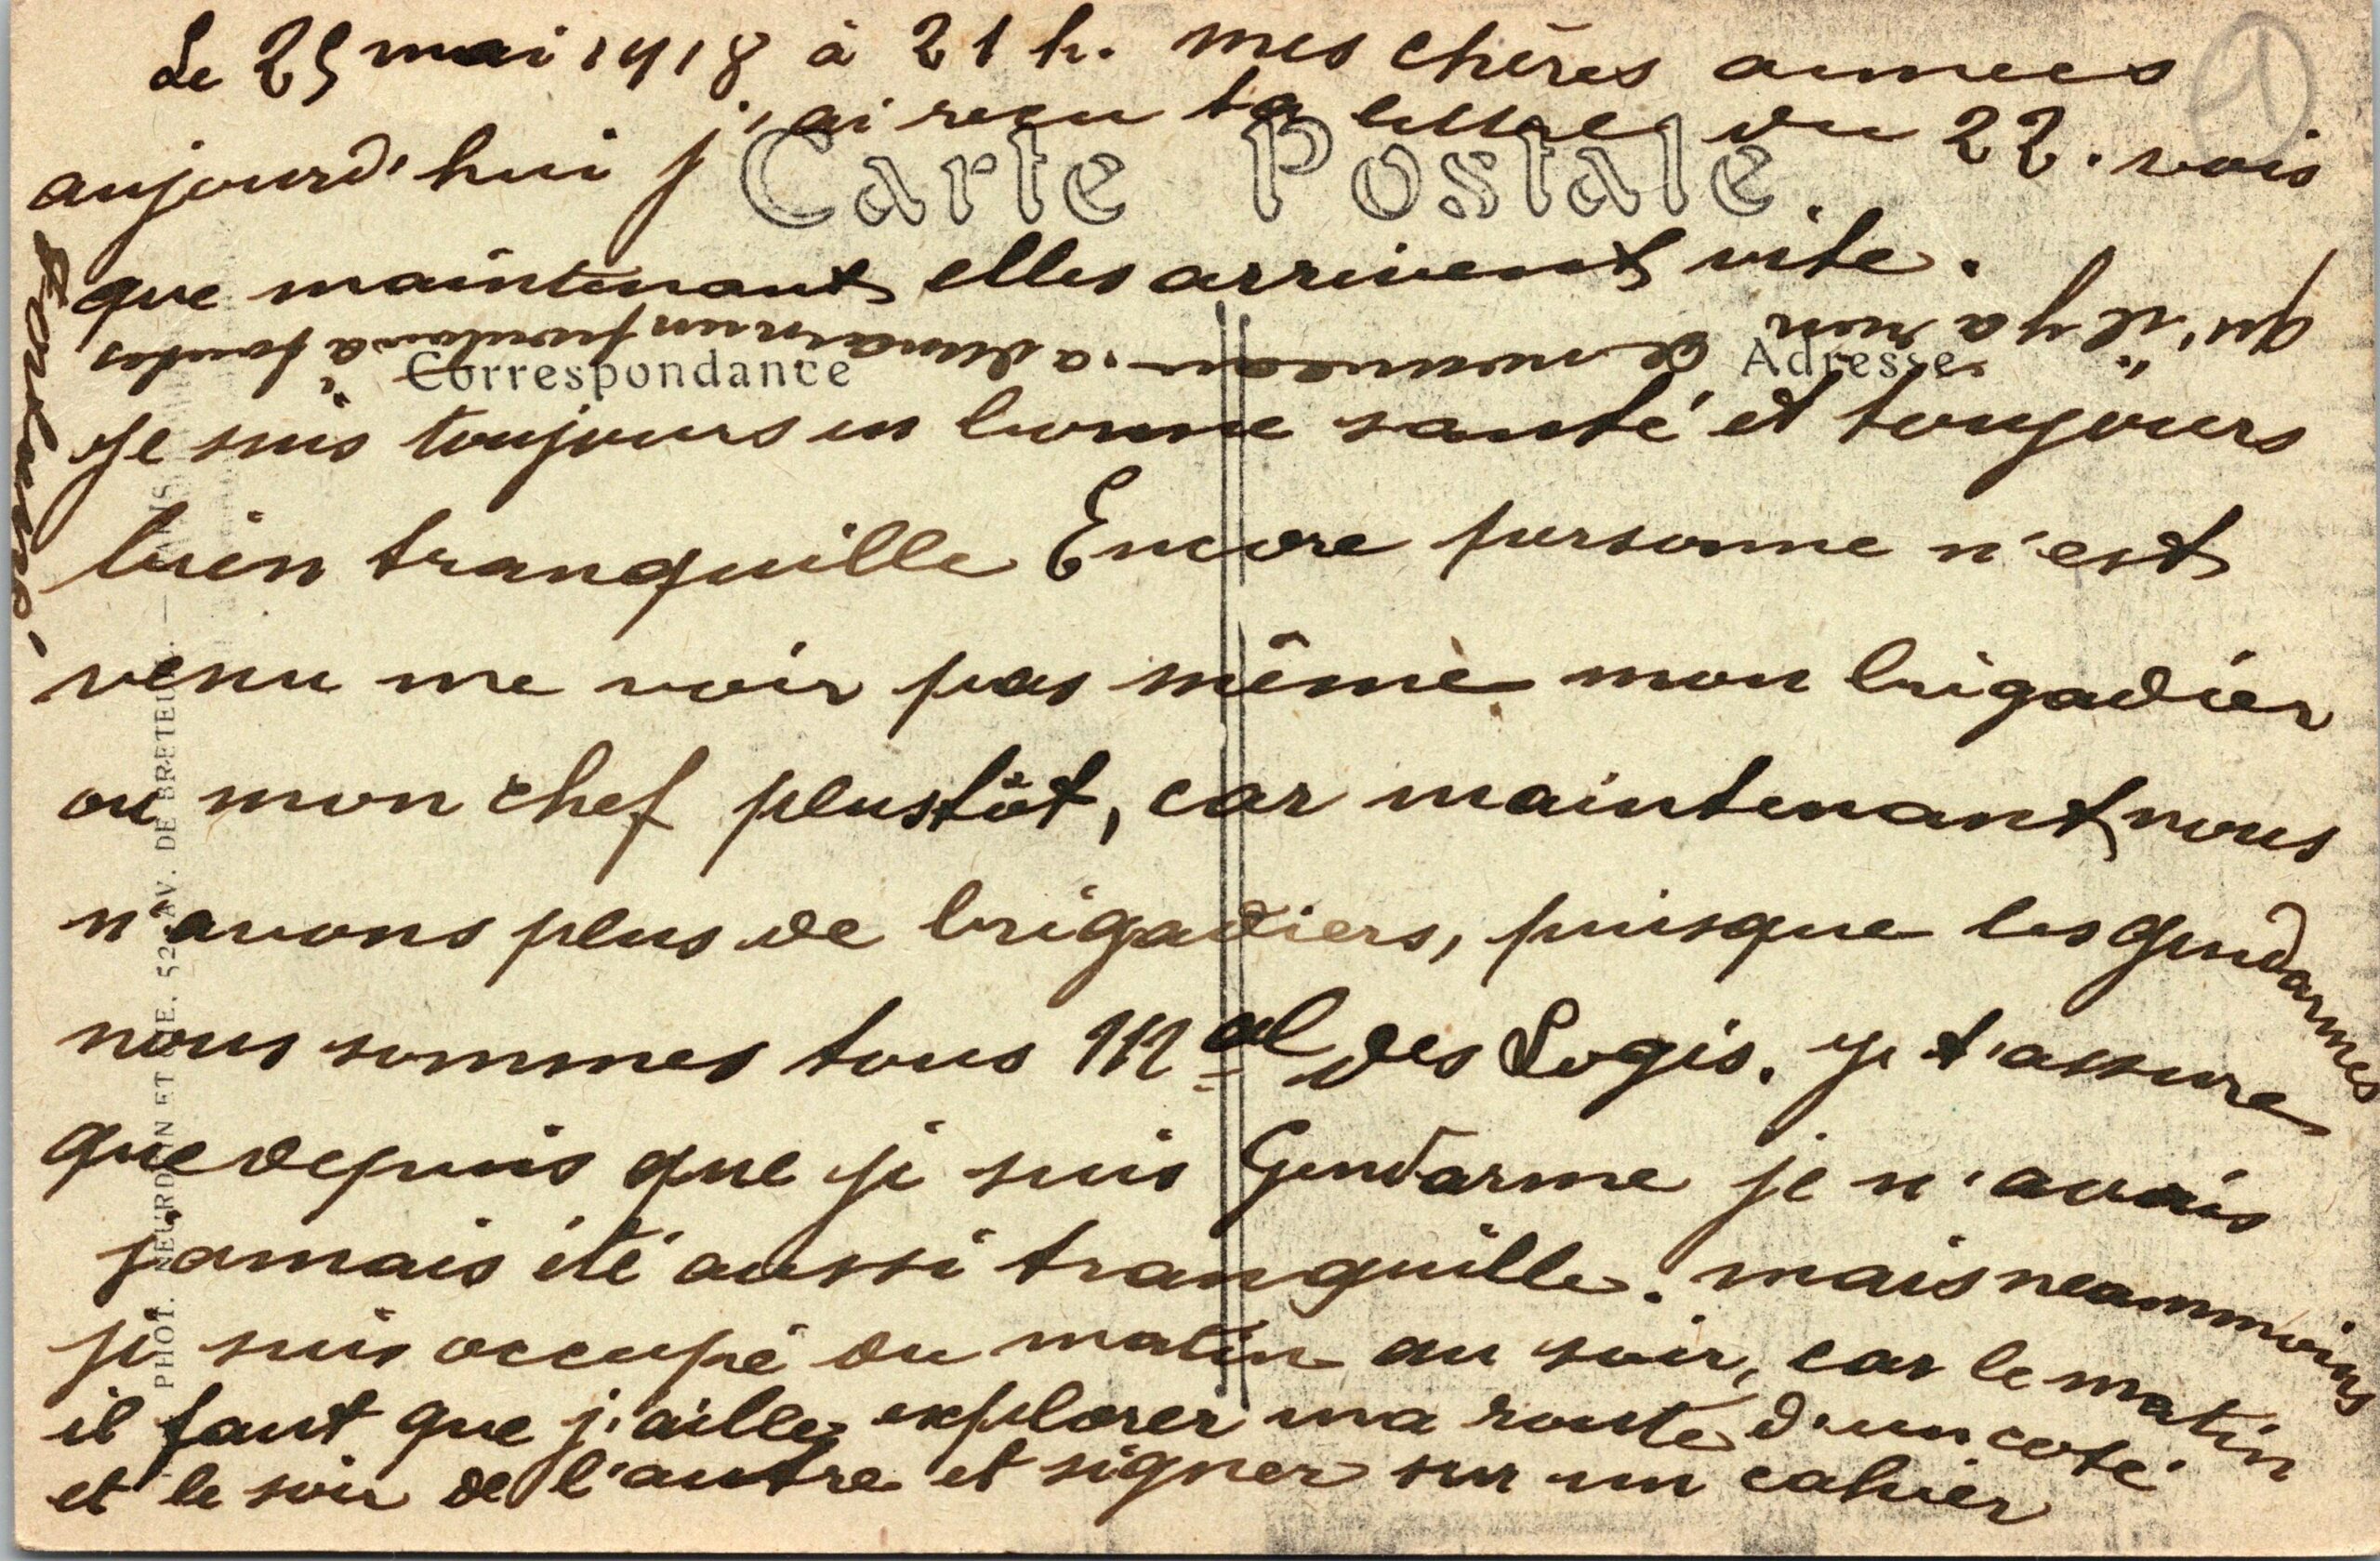 Le 25 mai 1918 à 21 h. mes chères aimées
aujourd'hui j'ai reçu ta lettre du 22. vois
Carte Postale
que maintenant elles arrivent vite.
qu'il y a rien de nouveau. a demain un
Correspondance
Adresse
je suis toujours en bonne santé et toujours
bien tranquille Encore personne n'est
venu me voir pas même mon brigadier
ou mon chef plustôt, car maintenant nous
n'avons plus de brigadiers, puisque les gendarmes
nous sommes tous Mal des Logis. je t'assure
que depuis que je suis Gendarme je n'avais
jamais été aussi tranquille. mais neammoins
je suis occupé du matin au soir, car le matin
il faut que j'aille explorer ma route d'un coté
et le soir de l'autre et signer sur un cahier
PHOT. NEURDEIN ET CIE. 52, AV. DE BRETEUIL. — PARIS
1